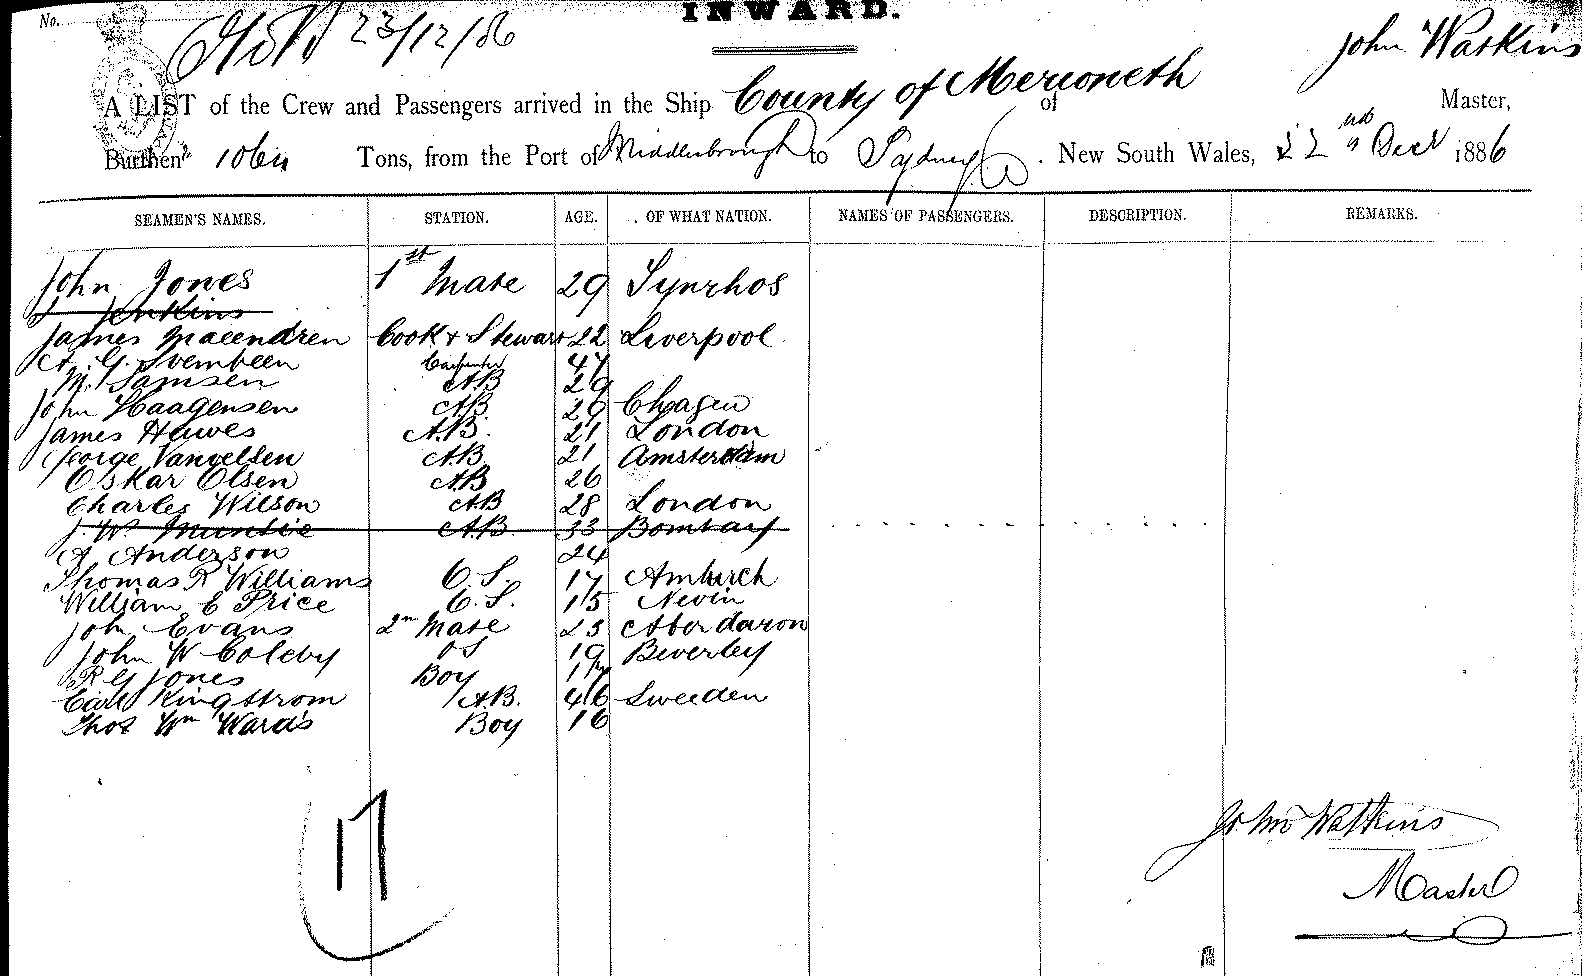 No.
23/12/86
INWARD.
John Watkins
A LIST of the Crew and Passengers arrived in the Ship County of Merioneth of Master,
Burthen Tons, from the Port of Middlesbrough to Sydney . New South Wales, 22nd Decr 1886
SEAMEN'S NAMES. STATION. AGE. OF WHAT NATION. NAMES OF PASSENGERS. DESCRIPTION. REMARKS.
John Jones 1st Mate 29
J Jenkins
James Macendren Cook & Stewart 22 Liverpool
A. G. Svembeen Carpenter 47
M. Samsen AB 29
John Haagensen AB 29 Chagen
James Hawes A.B. 21 London
George Vanvelsen AB 21 Amsterdam
Oskar Olsen AB 26
Charles Wilson AB 28 London
J. W. Muntie AB 33 Bombay
A Anderson 24
Thomas R Williams O.S. 17 Amlwch
William E Price O.S. 15 Nevin
John Evans 2nd Mate 23 Aberdaron
John W Coleby OS 19 Beverley
R G Jones Boy
Carl Ringstrom A.B. 46 Sweeden
Thos Wm Wards Boy 16
17
John Watkins
Master